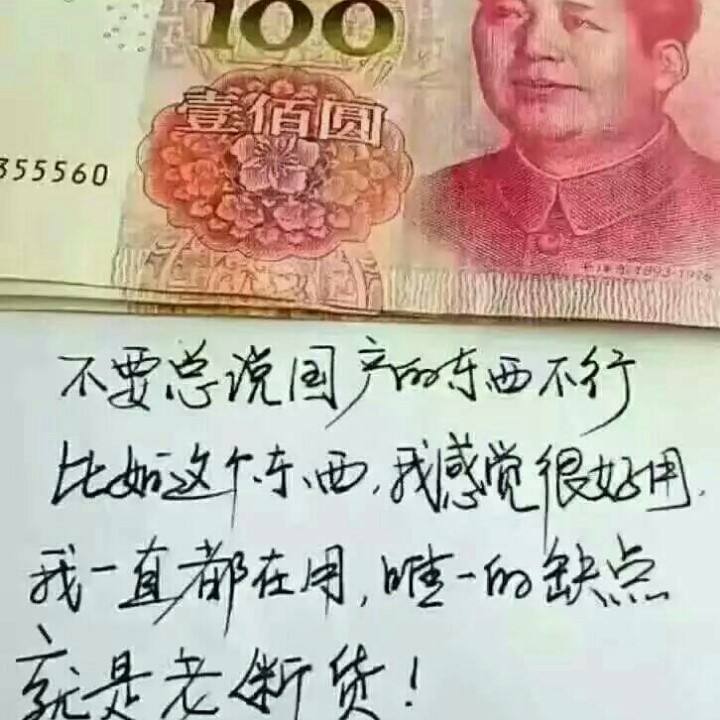 100
壹佰圆
355560
毛泽东 1893-1976
不要总说国产的东西不行
比如这个东西,我感觉很好用,
我一直都在用,唯一的缺点
就是老断货!